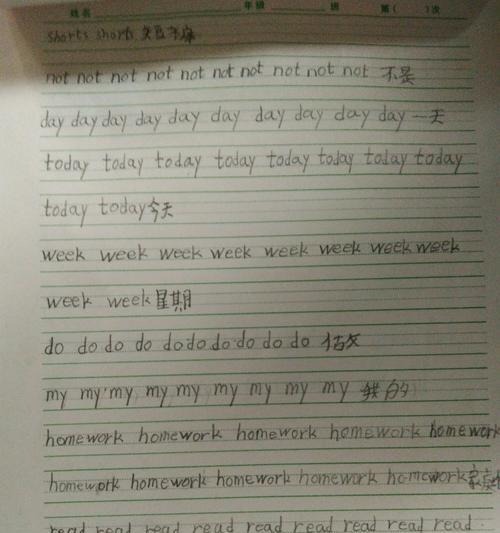 姓名 年级 班 第( )次
shorts shorts 短裤
not not not not not not not not not not 不是
day day day day day day day day day day 一天
today today today today today today today today
today today 今天
week week week week week week week week
week week 星期
do do do do do do do do do do 做
my my my my my my my my my 我的
homework homework homework homework homework
homework homework homework homework homework 家庭
read read read read read read read read read